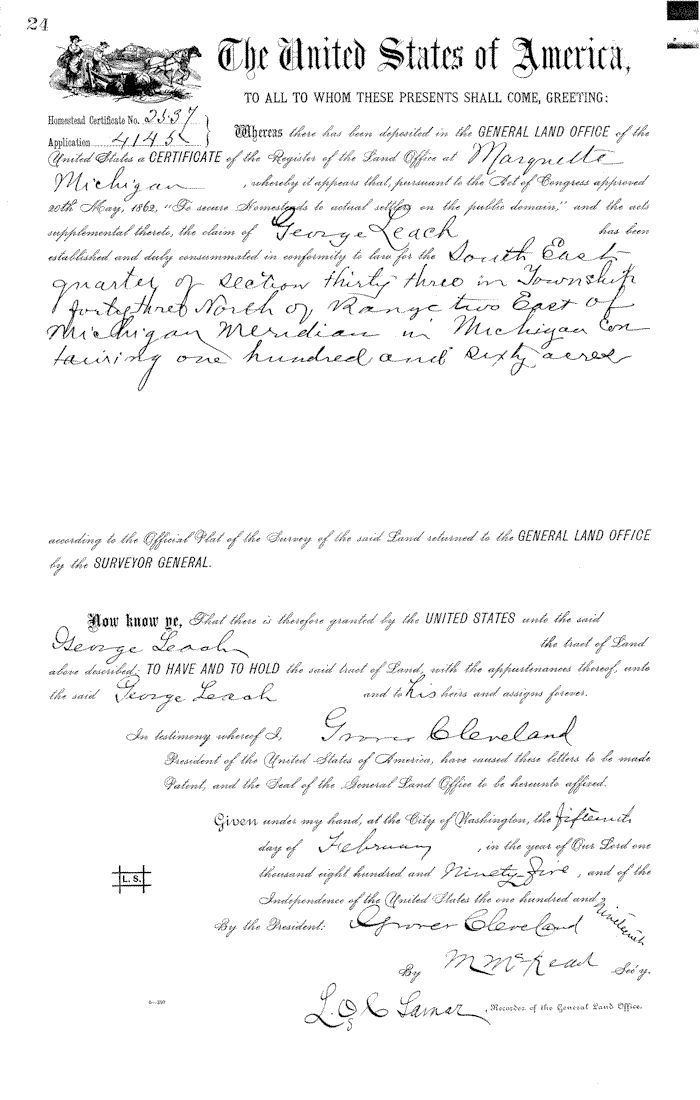 24
The United States of America,
TO ALL TO WHOM THESE PRESENTS SHALL COME, GREETING:
Homestead Certificate No. 2537
Application 4145
Whereas there has been deposited in the GENERAL LAND OFFICE of the
United States a CERTIFICATE of the Register of the Land Office at Marquette
Michigan , whereby it appears that, pursuant to the Act of Congress approved
20th May, 1862, "To secure Homesteads to actual settlers on the public domain," and the acts
supplemental thereto, the claim of George Leach has been
established and duly consummated in conformity to law for the South East
quarter of section thirty three in Township
forty three North of Range two East of
Michigan Meridian in Michigan Con
taining one hundred and sixty acres
according to the Official Plat of the Survey of the said Land returned to the GENERAL LAND OFFICE
by the SURVEYOR GENERAL.
Now know ye, That there is therefore granted by the UNITED STATES unto the said
George Leach the tract of Land
above described; TO HAVE AND TO HOLD the said tract of Land, with the appurtenances thereof, unto
the said George Leach and to his heirs and assigns forever.
In testimony whereof I, Grover Cleveland
President of the United States of America, have caused these letters to be made
Patent, and the Seal of the General Land Office to be hereunto affixed.
Given under my hand, at the City of Washington, the fifteenth
day of February , in the year of Our Lord one
thousand eight hundred and Ninety-five , and of the
Independence of the United States the one hundred and nineteenth
L. S.
By the President: Grover Cleveland
By M McKean Sec'y.
L. Q. C. Lamar , Recorder of the General Land Office.